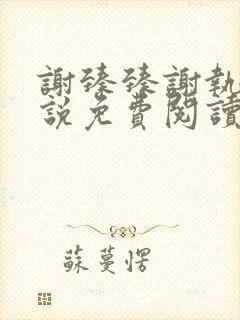 謝臻臻謝執
說免費閱讀
蘇蔓愣